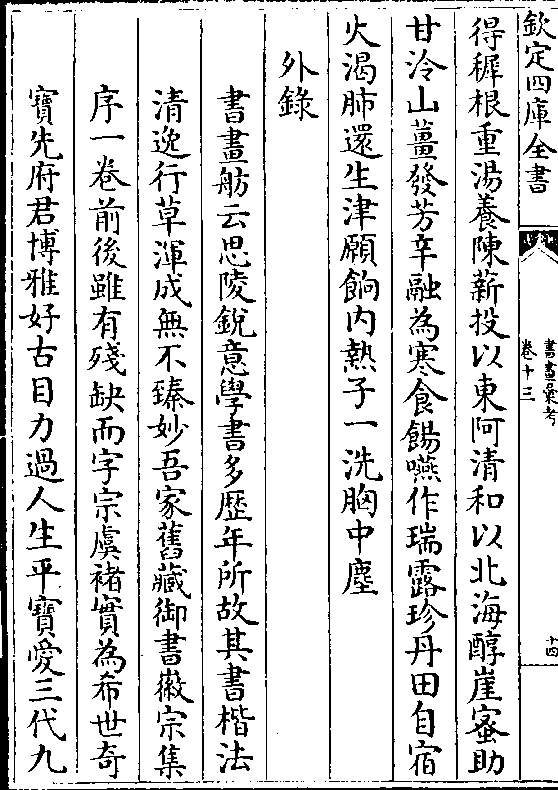 欽定四庫全書
書畫彙考
卷十三
十四
得穉根重湯養陳薪投以東阿清和以北海醇崖蜜助
甘泠山薑發芳辛融為寒食餳嚥作瑞露珍丹田自宿
火渴肺還生津願餉内熱子一洗胸中塵
外錄
書畫舫云思陵銳意學書多歴年所故其書楷法
清逸行草渾成無不臻妙吾家舊藏御書徽宗集
序一卷前後雖有殘缺而字宗虞褚實為希世奇
寶先府君博雅好古目力過人生平寶愛三代九